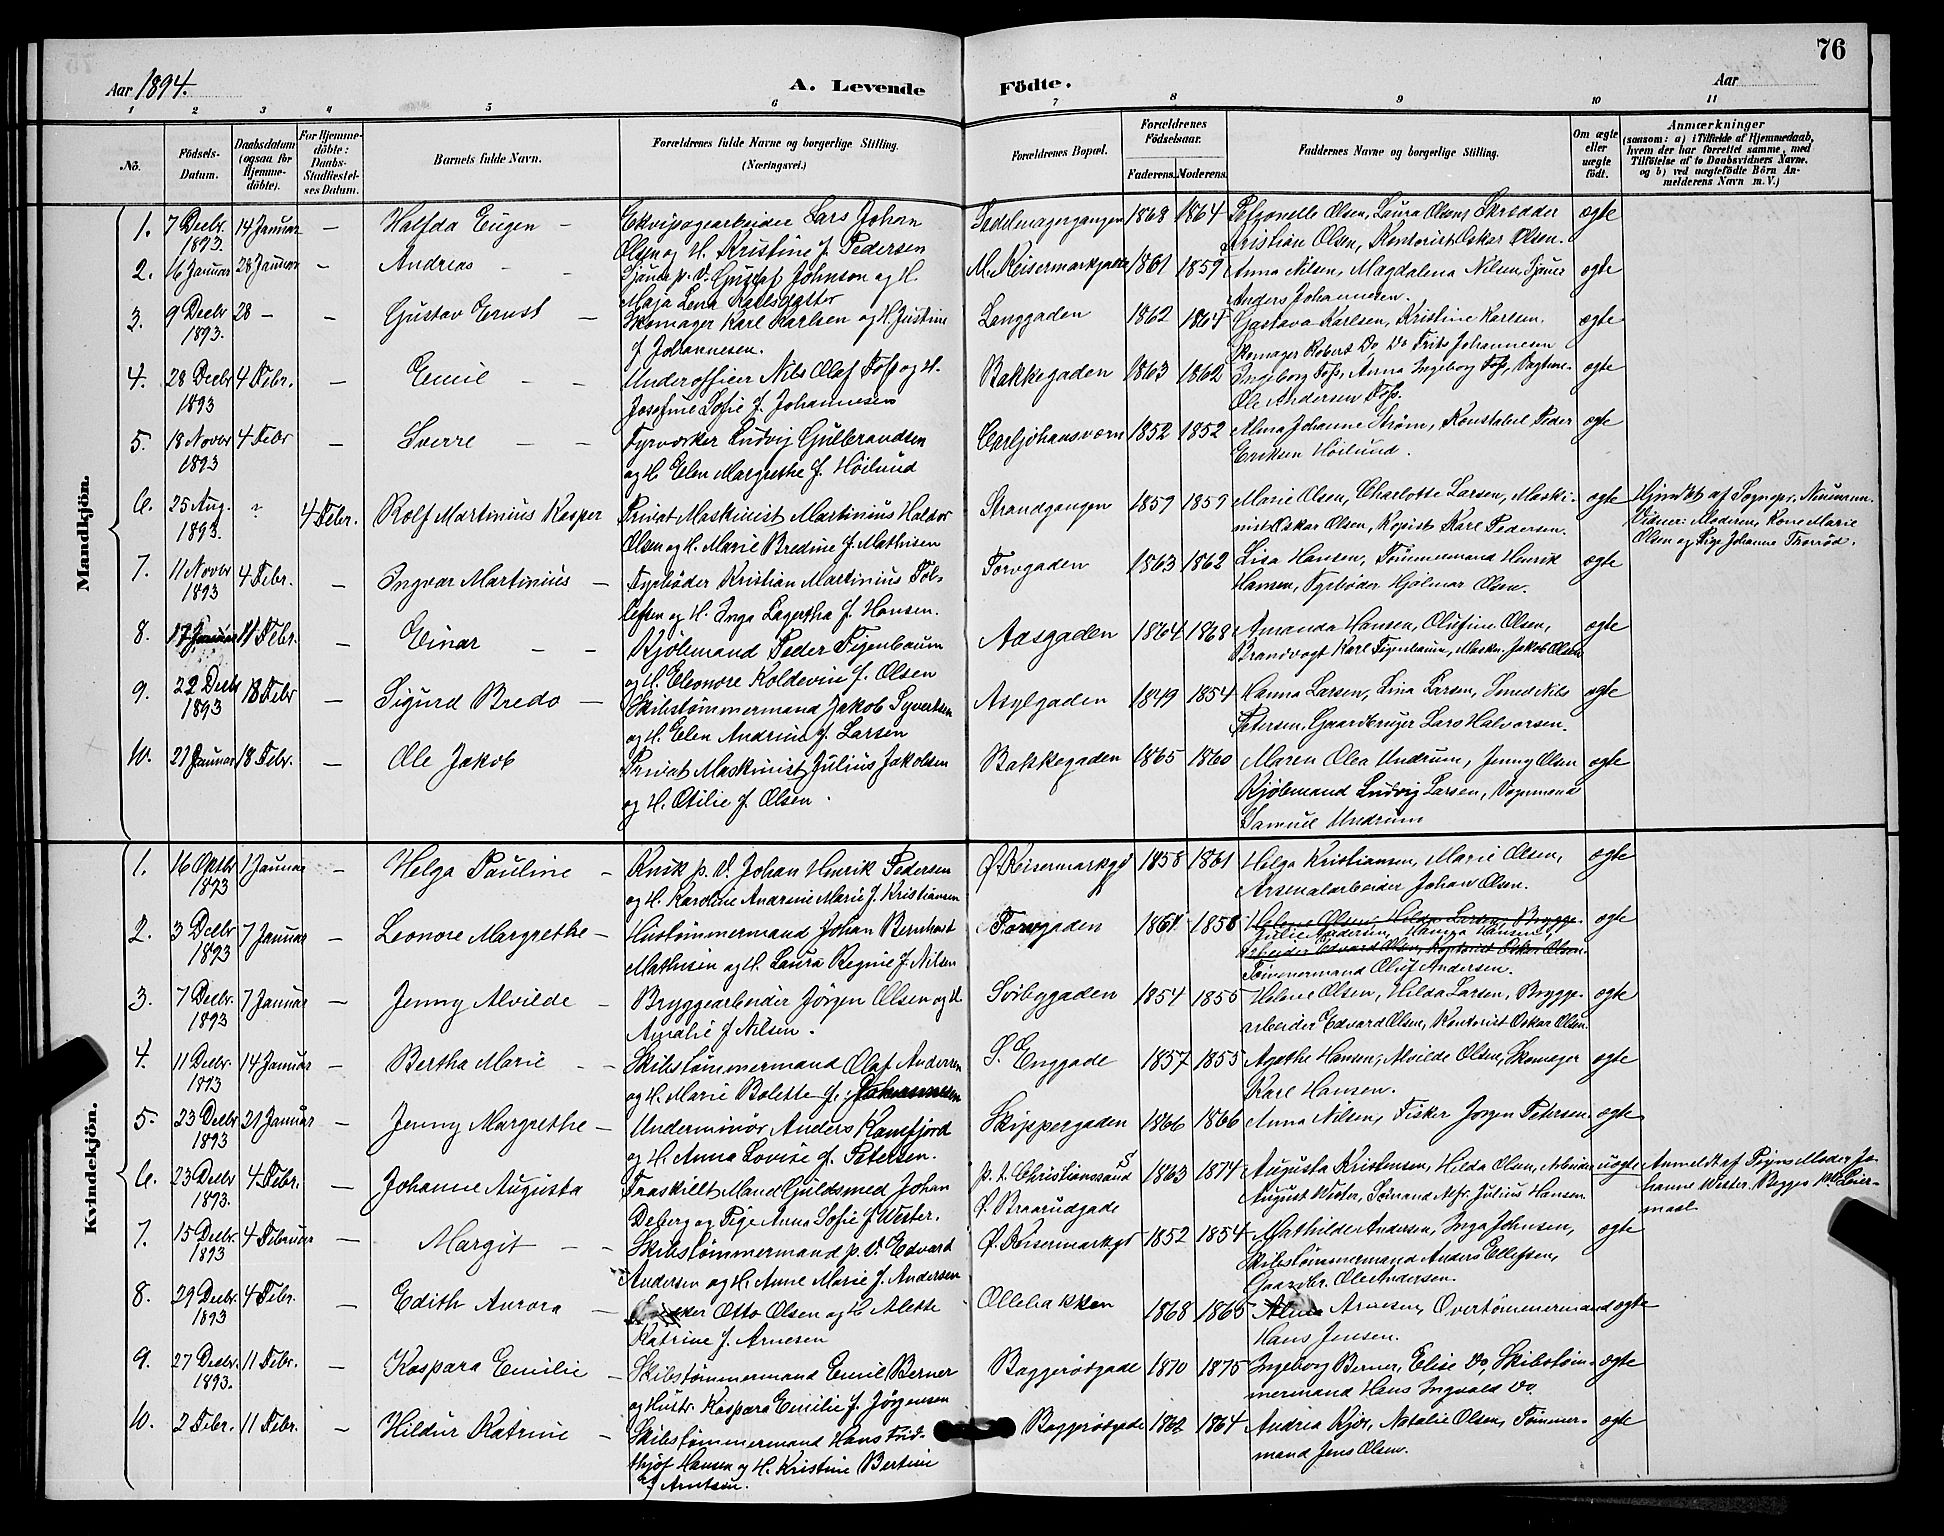 76
Aar 1894.
A. Levende Födte.
Aar
1 2 3 4 5 6 7 8 9 10 11
No.
Födsels-Datum.
Daabsdatum (ogsaa for Hjemme-döbte).
For Hjemme-döbte: Daabs-Stadfæstel-ses Datum.
Barnets fulde Navn.
Forældrenes fulde Navne og borgerlige Stilling.
(Næringsvei.)
Forældrenes Bopæl.
Forældrenes Födselsaar.
Faderens. Moderens.
Faddernes Navne og borgerlige Stilling.
Om ægte eller uægte födt.
Anmærkninger
(saasom: a) i Tilfælde af Hjemmedaab, hvem der har forrettet samme, med Tilföielse af to Daabsvidners Navne, og b) ved uægtefödte Börn An-melderens Navn m. V.)
Mandkjön.
1. 7 Decbr 1893. 14 Januar — Halfdan Eugen — Ekvipagearbeider Lars Johan
Olsen og H. Kristine f. Pedersen
Sadelmagergangen 1868 1864 Petronelle Olsen, Laura Olsen, Skrædder
Kristian Olsen, Kontorist Oskar Olsen. ægte
2. 16 Januar 28 Januar — Andreas — Sjand p. V. Gustaf Johnson og H.
Maja Lena Karlsdatter
M. Keisermarkgade 1861 1859 Anna Nilsen, Magdalena Nilsen, Tjener
Anders Johannesen. ægte
3. 9 Decbr 1893. 28 — — Gustav Ernst — Skomager Karl Karlsen og H. Justine
f. Johannesen.
Langgaden 1862 1864 Gustava Karlsen, Kristine Karlsen,
Skomager Robert Do, Do Frits Johannesen ægte
4. 28 Decbr 1893 4 Febr. — Emil — Underofficer Nils Olaf Foss og H.
Josefine Sofie f. Johannesen
Bakkegaden 1863 1862 Ingeborg Foss, Anna Ingeborg Foss, Vagtm.
Ole Andersen Foss. ægte
5. 18 Novbr 1893 4 Febr — Sverre — Fyrvorker Ludvig Gulbrandsen
og H. Elen Margrethe f. Höilund
Carljohansvern 1852 1852 Alma Johanne Ström, Konstabel Peder
Eriksen Höilund. ægte
6. 25 Aug. 1893. ? 4 Febr. Rolf Martinius Kasper Privat Maskinist Martinius Haldor
Olsen og H. Marie Bredine f. Mathisen
Strandgangen 1859 1859 Marie Olsen, Charlotte Larsen, Maski-
nist Oskar Olsen, Kopist Karl Pedersen. ægte
Hjmdbt af Sognepr. Neumann.
Vidner: Moderen, Kone Marie
Olsen og Pige Johanne Thorröd.
7. 11 Novbr 1893 4 Febr. — Ingvar Martinius — Fyrböder Kristian Martinius Tol-
lefsen og H. Inga Lagertha f. Hansen.
Torvgaden 1863 1862 Lisa Hansen, Tömmermand Henrik
Hansen, Fyrböder Hjalmar Olsen. ægte
8. 17 Januar 11 Febr. — Einar — Kjölemand Peder Figenbaum
og H. Eleonore Koldevin f. Olsen
Aasgaden 1864 1868 Amanda Hansen, Olufine Olsen,
Brandvogt Karl Figenbaum, Maskn. Jakob Olsen ægte
9. 22 Decbr 1893 18 Febr — Sigurd Bredo — Skibstömmermand Jakob Syvertsen
og H. Elen Andrine f. Larsen
Asylgaden 1849 1854 Hanna Larsen, Lina Larsen, Smed Nils
Petersen, Gaardbruger Lars Halvorsen. ægte
10. 21 Januar 18 Febr. — Ole Jakob Privat Maskinist Julius Jakobsen
og H. Otilie f. Olsen.
Bakkegaden 1865 1860 Maren Olea Undrum, Jenny Olsen
Kjölemand Ludvig Larsen, Vognmand
Samuel Undrum ægte
Kvindekjön.
1. 16 Oktbr 1893 1 Januar — Helga Pauline — Kusk p. V. Johan Henrik Pedersen
og H. Karoline Andrine Marie f. Kristiansen
Ø. Keisermarkgd 1858 1861 Helga Kristiansen, Marie Olsen,
Arsenalarbeider Johan Olsen. ægte
2. 3 Decbr 1893 7 Januar — Leonore Margrethe — Hustömmermand Johan Bernhard
Mathisen og H. Laura Regine f. Nilsen
Torvgaden 1861 1858 Helene Olsen, Hilda Larsen, Brygge-
Julie Andersen, Hanna Hansen
arbeider Edvard Olsen, Kontorist Oskar Olsen.
Tömmermand Oluf Andersen. ægte
3. 7 Decbr. 1893 7 Januar — Jenny Alvilde — Bryggearbeider Jörgen Olsen og H.
Amalie f. Nilsen.
Svibygaden 1854 1855 Helene Olsen, Hilda Larsen, Brygge-
arbeider Edvard Olsen, Kontorist Oskar Olsen ægte
4. 11 Decbr. 1893 14 Januar — Bertha Marie — Skibstömmermand Olaf Andersen
og H. Marie Bolette f. Johannesen
S. Enggade 1857 1855 Agathe Hansen, Alvilde Olsen, Skomager
Karl Hansen. ægte
5. 23 Decbr 1893 21 Januar — Jenny Margrethe — Underminör Anders Kamfjord
og H. Anna Lovise f. Petersen.
Skippergaden 1866 1866 Anna Nilsen, Fisker Jörgen Petersen ægte
6. 23 Decbr 1893. 4 Febr. — Johanne Augusta Fraskillt Mand Guldsmed Johan
Deberg og Pige Anna Sofie f. Wester.
p. t. Christianssand S
Ø. Braarudgade 1863 1874 Augusta Kristensen, Hilda Olsen, Arbeider
August Wister, Sömand Alfr. Julius Hansen uægte
Anmeldt af Pigens Moder Jo-
hanne Wester. Begges 1ste Leier-
maal
7. 15 Decbr. 1893 4 Februar — Margit — Skibstömmermand p. V. Edvard
Andersen og H. Anne Marie f. Andersen
Ø. Keisermarkgd 1852 1854 Mathilde Andersen, Inga Johnsen,
Skibstömmermand Anders Ellefsen,
Gaardbr. Ole Andersen. ægte
8. 29 Decbr. 1893 4 Febr. — Edith Aurora — Otto Olsen og H. Alette
Katrine f. Arnesen
Ollebakken 1868 1865 Arnesen, Overtömmermand
Hans Jensen. ægte
9. 27 Decbr. 1893. 11 Febr. — Kaspara Emilie — Skibstömmermand Emil Berner
og Hustr. Kaspara Emilie f. Jörgensen
Baggerödgade 1870 1875 Ingeborg Berner, Elise Do, Skibstöm-
mermand Hans Ingvald Do. ægte
10. 2 Febr. 11 Febr. — Hildur Katrine — Skibstömmermand Hans Frid-
thjof Hansen og H. Kristine Bertine
f. Arntsen.
Baggerödgade 1862 1864 Andrea Kjær, Natalie Olsen, Tömmer-
mand Jens Olsen. ægte